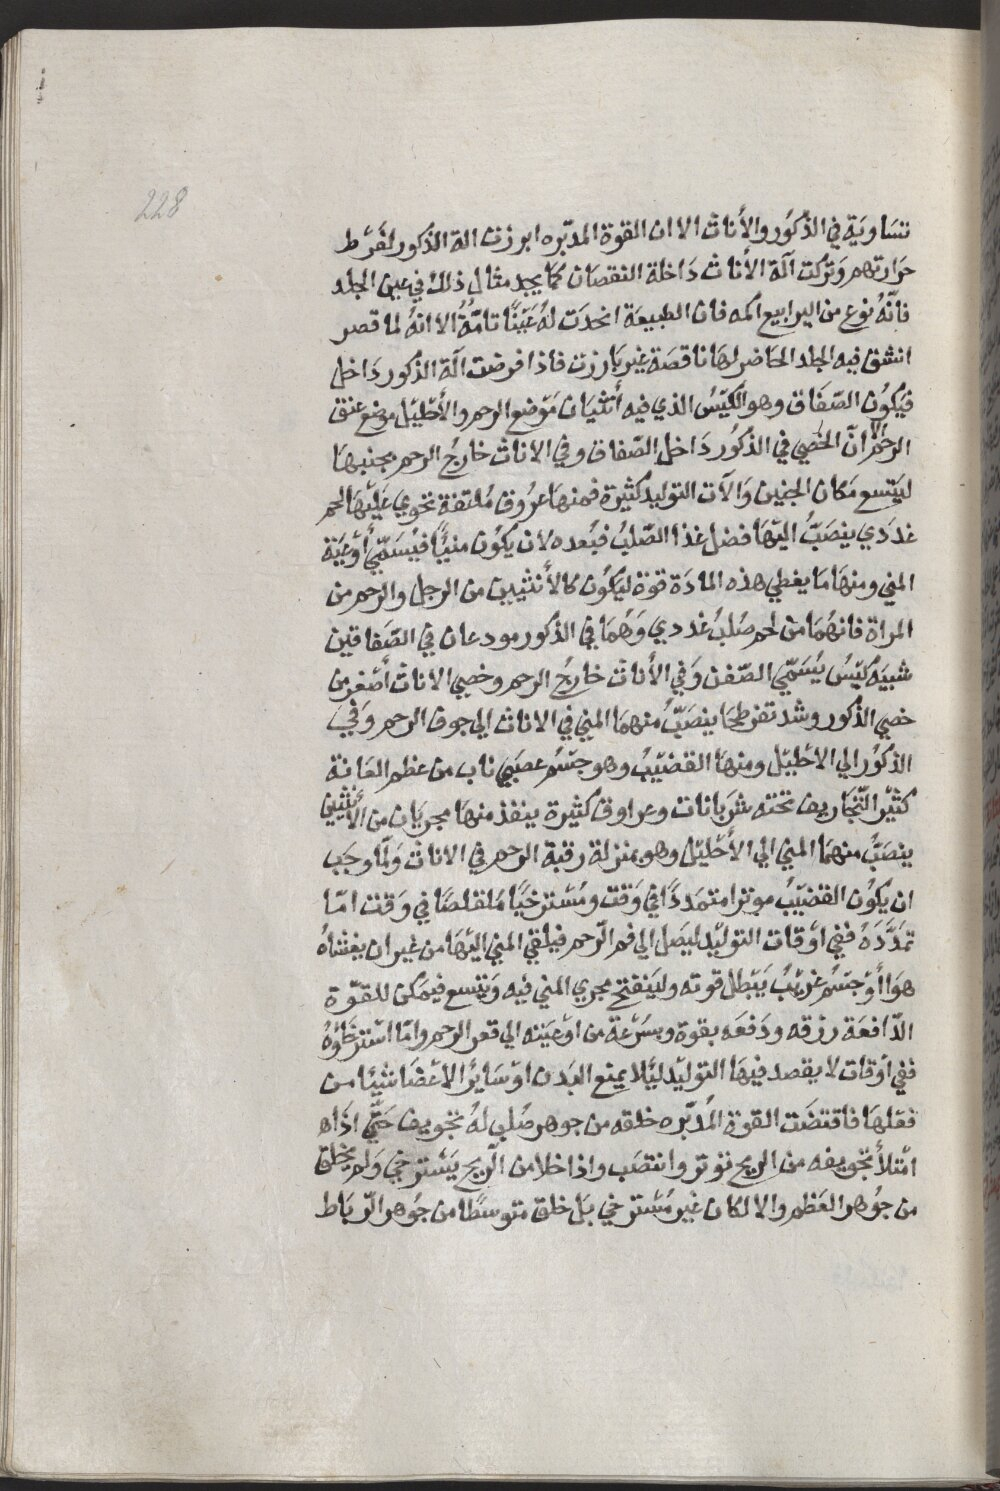 228
تتساويَة في الذكوُر والأناث الا ان القوة المدبّره ابرزت الة الذكور لفَرْط
حَرارتهم وَتركت آلة الأناث دَاخلة النقصَان كمَا يجد مثال ذلك في عين الجلد
فانّهُ نوع من اليرابيع اكمه فان الطبيعَة اتخدَت لهُ عَيْنًا تامَّةُ الا انهُ لما قصر
انشق فيه الجلد الحَاضر لهَا ناقصَة غير بَارزت فاذا فرضت آلَة الذكور دَاخل
فيَكُون الصّفَاق وهو الكيّسُ الذي فيه أنثيَان مَوْضع الرحم والأحْليْل موضع عنق
الرحم الا انّ الخصي في الذكوُر دَاخل الصّفاق وفي الاناث خارجُ الرحم بجنبهَا
ليَتّسع مَكان الجنين وَالآت التوليد كثيرة فمنهَا عرُوق مُلتفة تحوي عَليْهَا لحم
غددَي ينصَبُّ اليْهَا فضل غذا الصّلبُ فبُعده لان يكوُن منيًّا فيُسَمّي أوْعيَة
المني ومنهَا مَا يعطي هذه المادَة قوة ليَكُون كالأنثيين من الرجل والرحم من
المراة فانهُمَا من لحم صُلبُ غددي وَهُمَا في الذكور مودعان في الصّفَاقين
شبيَه كيْسُ يُسَمّي الصّفن وَفي الأناث خارجُ الرحم وخصي الاناث أصْغر من
خصي الذكور وشد تفرطحًا ينصَبّ منهمَا المني في الاناث الي جوف الرحم وَفي
الذكوُر الي الاحْليْل ومنهَا القضيْبُ وهو جسْم عصَبي ناب من عظم العَانة
كثيْر التّجَاريف تحته شرَيانات وعراوق كثيرة ينفذ منهَا مجريَان من الأنثيين
ينصَبُّ منهمَا المني الي الأحْليْل وهو بمنزلة رقبة الرحم في الاناث وَلمَّا وجَب
ان يكوُن القضيْبُ موترا متمَددًا في وَقت ومُسْترخيًا مُلقلصًا في وَقت امّا
تمَدّدَهُ ففي اوْقات التوليْد ليصَل الي فم الرّحم فيلقي المني اليْهَا من غير ان يغشاهُ
هوَا أوْ جسْم غريْبُ يَبْطل قوته وليَنفتح مجري المني فيْه وَيتسع فيمَكن للقوّة
الدّافعَة رزقه ودَفعَه بقوة وبسُرْعة من اوْعيَته الي قعر الرحم وامّا اسْترخَاؤهُ
ففي اوْقات لا يقصد فيهَا التوليْد ليَّلا يمنع البَدن اوْ سَايرُ الاعْضَا شيئا من
فعْلهَا فاقتضَت القوة المُدبّره خلقه من جوهر صُلبي لهُ تجويف حَتّي اذَاه
امْتلأ تجويفه من الريح توتر وانتصَب واذا خلا من الرّيح يَسْترخي وَلم يخلق
من جوُهر العَظم والا لكان غير مُسْترخي بَل خلق متوسطًا من جوُهر الرّبَاط